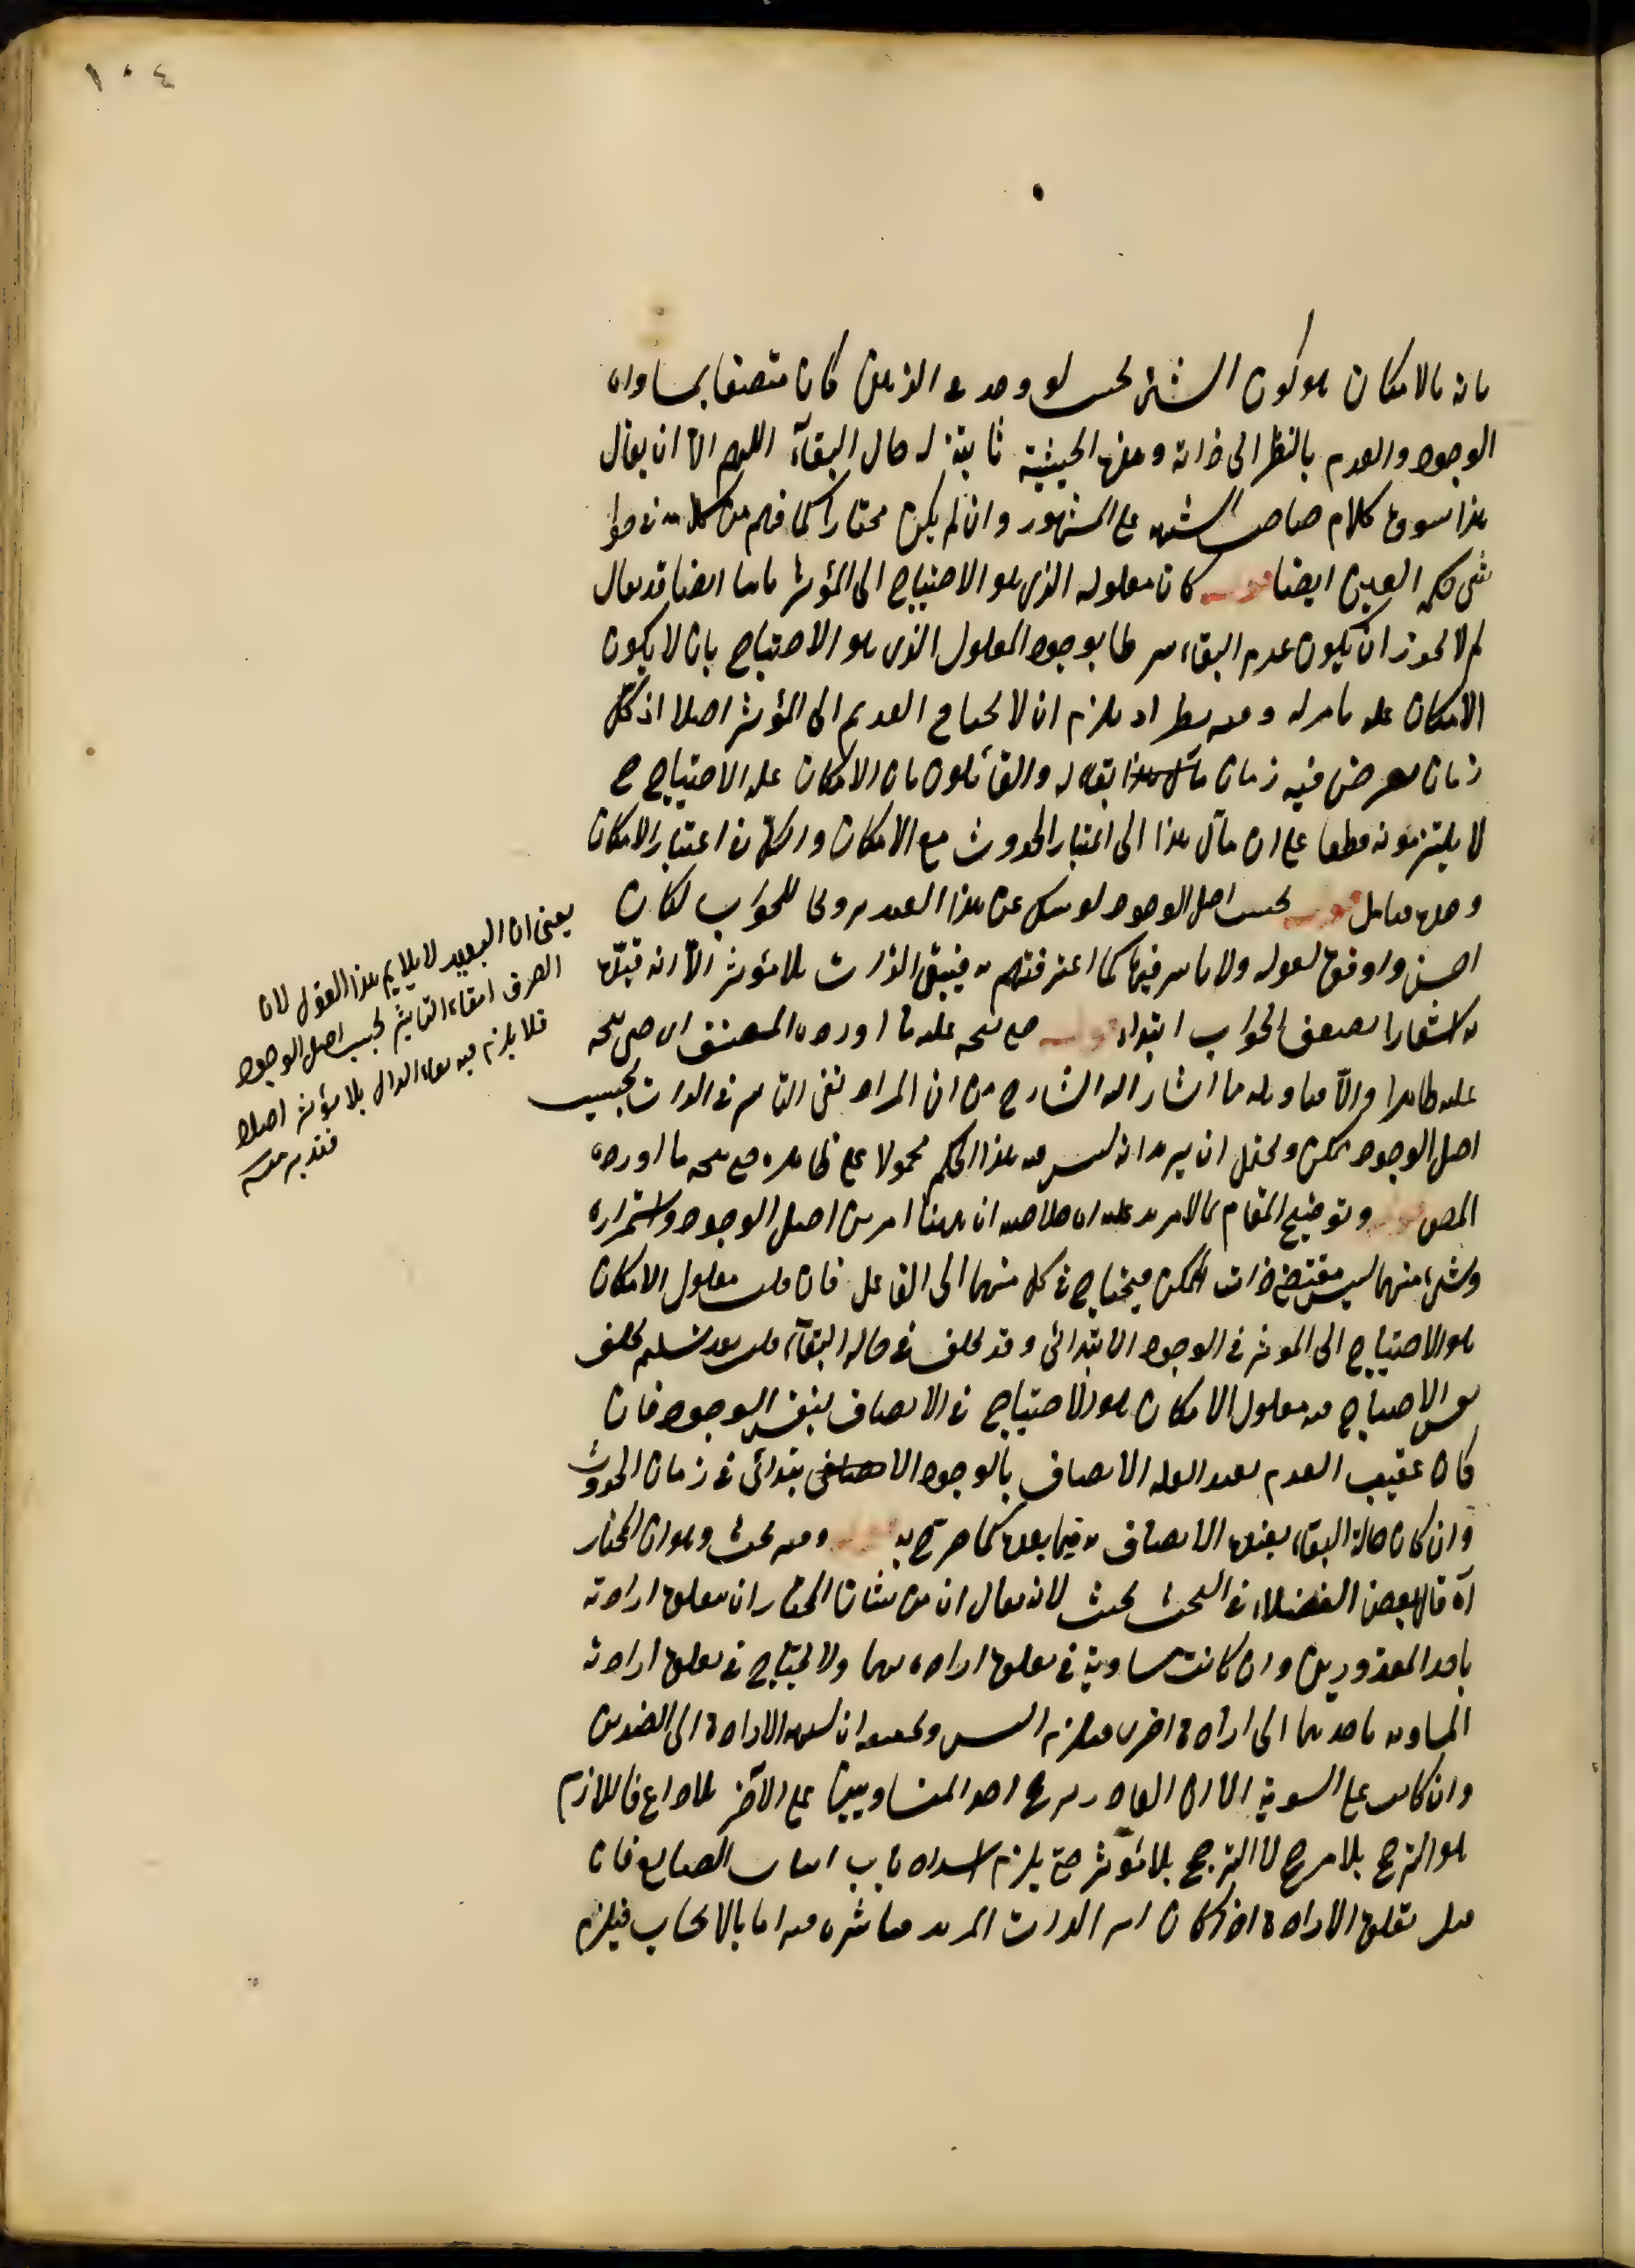 ١٠٤
بانه بالامكان هو كون الشئ بحيث لو وجد فى الذهن كان متصفا بمساواه
الوجود والعدم بالنظر الى ذاته وهذه الحيثية ثابتة له حال البقآء اللهم الا ان يقال
هذا سوق كلام صاحب الشبهه على المشهور وان لم يكن مختارا كما فهم من كلامه فى
شرح حكمه العين ايضا قوله كان معلوله الذى هو الاحتياج الى المؤثر ثابتا ايضا قد يقال
لم لا يجوز ان يكون عدم البقاء شرطا بوجود المعلول الذى هو الاحتياج بان لا يكون
الامكان علة تامه له وفيه نظر اذ يلزم ان لا يحتاج القديم الى المؤثر اصلا اذ كل
زمان يفرض فيه زمان بقائه والقائلون بان الامكان علة الاحتياج ح
لا يلتزمونه قطعا على ان مآل هذا الى اعتبار الحدوث مع الامكان والكلام فى اعتبار الامكان
وحده فتامل قوله بحسب اصل الوجود لو سئل عن هذا القيد للجواب لكان
احسن واوفق لقوله ولا تاثير فيها كما اعترفتم به فيبقى الذات بلا مؤثر الا انه قيده
به اشعارا بضعف الجواب ابتداء قوله ح يتجه عليه ما اورده المصنف اى ح يتجه
عليه ظاهرا والا فتاويله ما اشار اليه الشارح من ان المراد نفى التاثير فى الذات بحسب
اصل الوجود ممكن ويحتمل ان يريد انه ليس هذا الحكم محمولا على ظاهره ح يتجه ما اورده
المص قوله وتوضيح المقام بما لا مزيد عليه خلاصته ان ههنا امرين اصل الوجود واستمراره
وشئ منهما ليس مقتضى ذات الممكن فيحتاج فى كل منهما الى الفاعل فان قلت معلول الامكان
هو الاحتياج الى المؤثر فى الوجود الابتدائى وقد تخلف فى حالة البقآء قلت بعد تسليم تخلف
نفس الاحتياج معلول الامكان هو الاحتياج فى الاتصاف بنفس الوجود فان
كان عقيب العدم يفيد العلة الاتصاف بالوجود الابتدائى فى زمان الحدوث
وان كان حالة البقاء يفيد الاتصاف به فيما بعد كما صرح به قوله وفيه بحث وهو ان المختار
آه قال بعض الفضلاء فى البحث بحث لانه يقال ان من شان المختار ان يتعلق ارادته
باحد المقدورين وان كانت مساوية فى تعلق اراده بهما ولا يحتاج فى تعلق ارادته
المساويه باحدهما الى ارادة اخرى فيلزم التس وتحقيقه ان نسبة الارادة الى الضدين
وان كانت على السوية الا ان القادر يرجح احد المتساويين على الآخر بلا داع فاللازم
هو الترجيح بلا مرجح لا الترجح بلا مؤثر حتى يلزم انسداد باب اثبات الصانع فان
قيل تعلق الارادة اذا كان اثر الذات المريد مباشره فيه اما بالايجاب فيلزم
يعنى ان البعيد لا يلايم هذا القول لان
الصرف انتفاء التاثير بحسب اصل الوجود
فلا يلزم فيه بقاء الذات بلا مؤثر اصلا
فتدبر منه